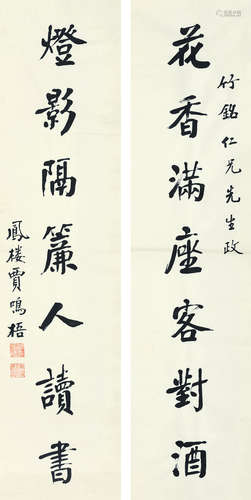 竹銘仁兄先生政
花香滿座客對酒
燈影隔簾人讀書
鳳樓賈鳴梧